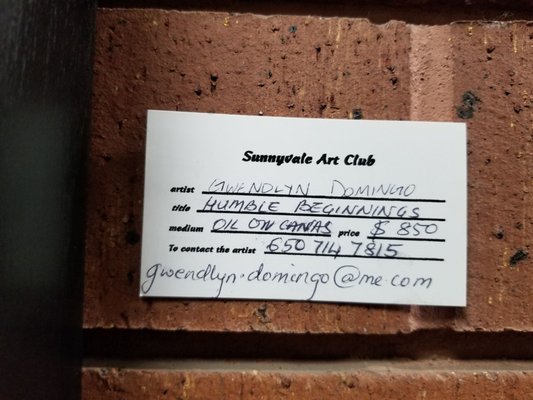 Sunnyvale Art Club
artist GWENDLYN DOMINGO
title HUMBLE BEGINNINGS
medium OIL ON CANAS price $ 850
To contact the artist 650 714 7815
gwendlyn.domingo@me.com